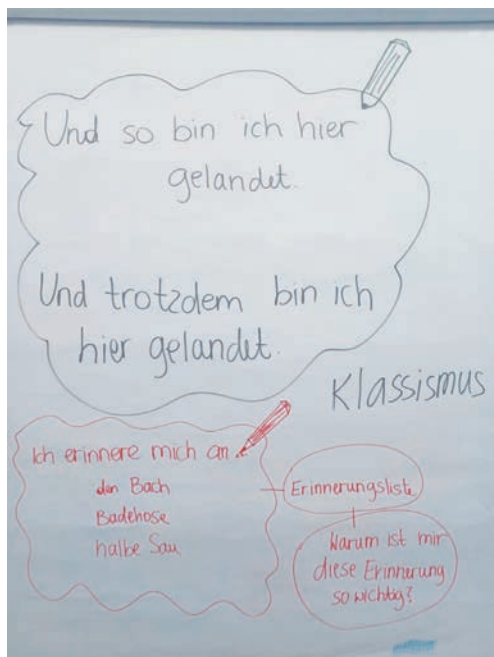 Und so bin ich hier
gelandet.
Und trotzdem bin ich
hier gelandet.
Klassismus
Ich erinnere mich an
den Bach
Badehose
halbe Sau
Erinnerungsliste
Warum ist mir
diese Erinnerung
so wichtig?